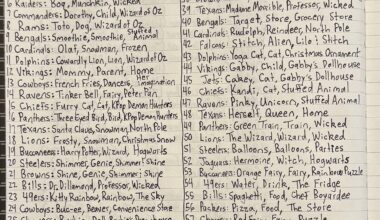 6 Raiders: Boq, Munchkin, Wicked
7 Commanders: Dorothy, Child, Wizard of Oz
8 Rams: Toto, Dog, Wizard of Oz
9 Bengals: Smoothie, Smoothie, Stuffed Animal
10 Cardinals: Olaf, Snowman, Frozen
11 Dolphins: Cowardly Lion, Lion, Wizard of Oz
12 Vikings: Mommy, Parent, Home
13 Cowboys: French Fries, Dancers, her imagination
14 Ravens: Tinker Bell, Fairy, Peter Pan
15 Chiefs: Furry Cat, Cat, KPop Demon Hunters
16 Panthers: Three Eyed Bird, Bird, KPop Demon Hunters
17 Texans: Santa Claus, Snowman, North Pole
18 Lions: Frosty, Snowman, Christmas Snow
19 Buccaneers: Harry Potter, Wizard, Hogwarts
20 Steelers: Shimmer, Genie, Shimmer + Shine
21 Browns: Shine, Genie, Shimmer + Shine
22 Bills: Dr. Dillamond, Professor, Wicked
23 49ers: Kitty Rainbow, Rainbow, The Sky
39 Texans: Madame Morrible, Professor, Wicked
40 Bengals: Target, Store, Grocery Store
41 Cardinals: Rudolph, Reindeer, North Pole
42 Falcons: Stitch, Alien, Lilo + Stitch
43 Dolphins: Yoga Cat, Cat, Christmas Ornament
44 Vikings: Gabby, Child, Gabby's Dollhouse
45 Jets: Cakey, Cat, Gabby's Dollhouse
46 Chiefs: Kandi, Cat, Stuffed Animal
47 Ravens: Pinky, Unicorn, Stuffed Animal
48 Texans: Herself, Queen, Home
49 Panthers: Green Train, Train, Wicked
50 Lions: The Wizard, Wizard, Wicked
51 Steelers: Balloons, Balloons, Parties
52 Jaguars: Hermoine, Witch, Hogwarts
53 Buccaneers: Orange Fairy, Fairy, Rainbow Puzzle
54 49ers: Water, Drink, The Fridge
55 Bills: Spaghetti, Food, Chef Boyardee
56 Packers: Pizza, Food, The Store